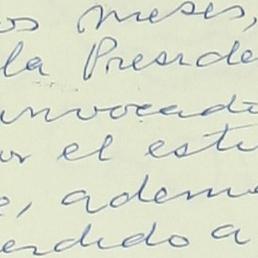 os meses,
la Preside
nvocado
or el estu
e, ademá
erdido a